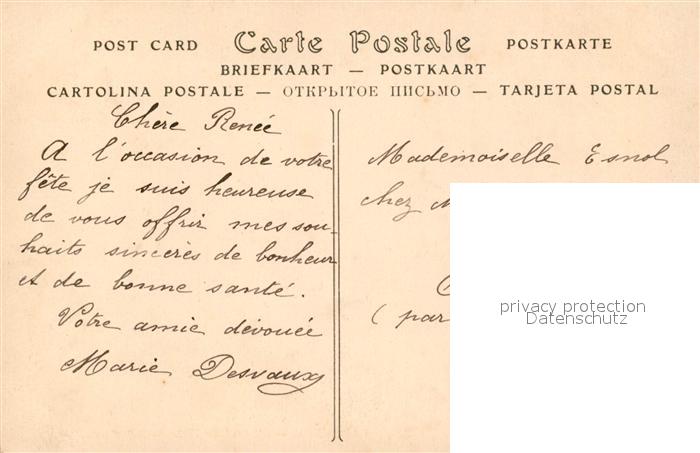 POST CARD Carte Postale POSTKARTE
BRIEFKAART — POSTKAART
CARTOLINA POSTALE — ОТКРЫТОЕ ПИСЬМО — TARJETA POSTAL
Chère Renée
A l'occasion de votre
fête je suis heureuse
de vous offrir mes sou-
haits sincères de bonheur
et de bonne santé.
Votre amie dévouée
Marie Desvaux
Mademoiselle Esnol
chez
( par
privacy protection
Datenschutz